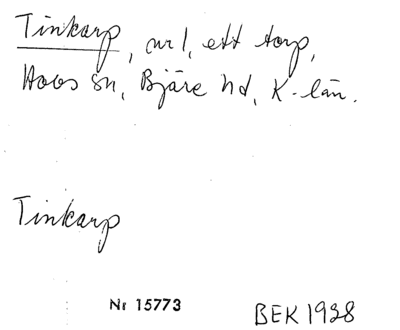 Tinkarp, nr 1, ett torp,
Hovs sn, Bjäre hd, K-län.
Tinkarp
Nr 15773
BEK 1938